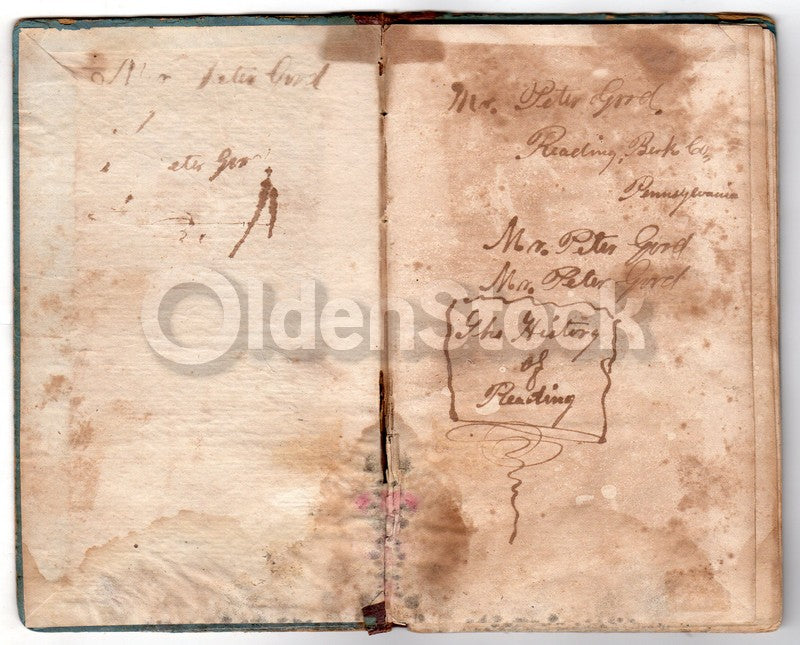 Mr Peter Gord
eter Gor
Mr. Peter Gord.
Reading, Berk Co,
Pennsylvania
Mr. Peter Gord
Mr. Peter Gord
The History
of
Reading
OldenStock